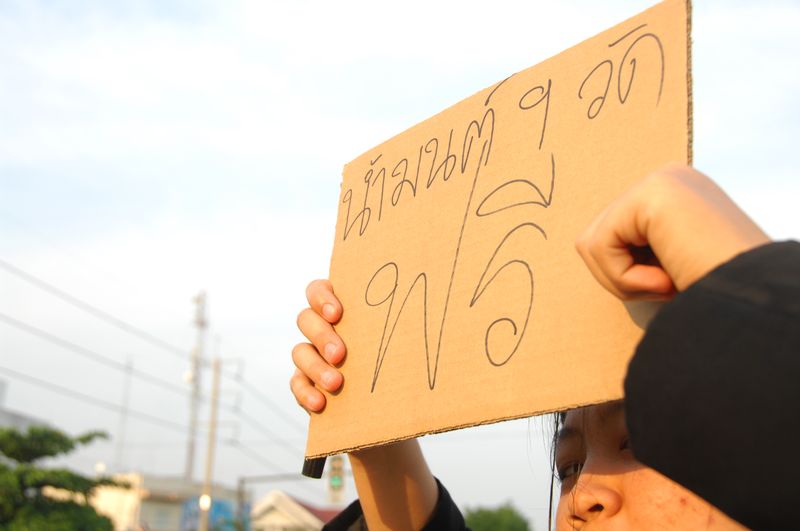 น้ำมนต์ ๆ วัด
ฟรี